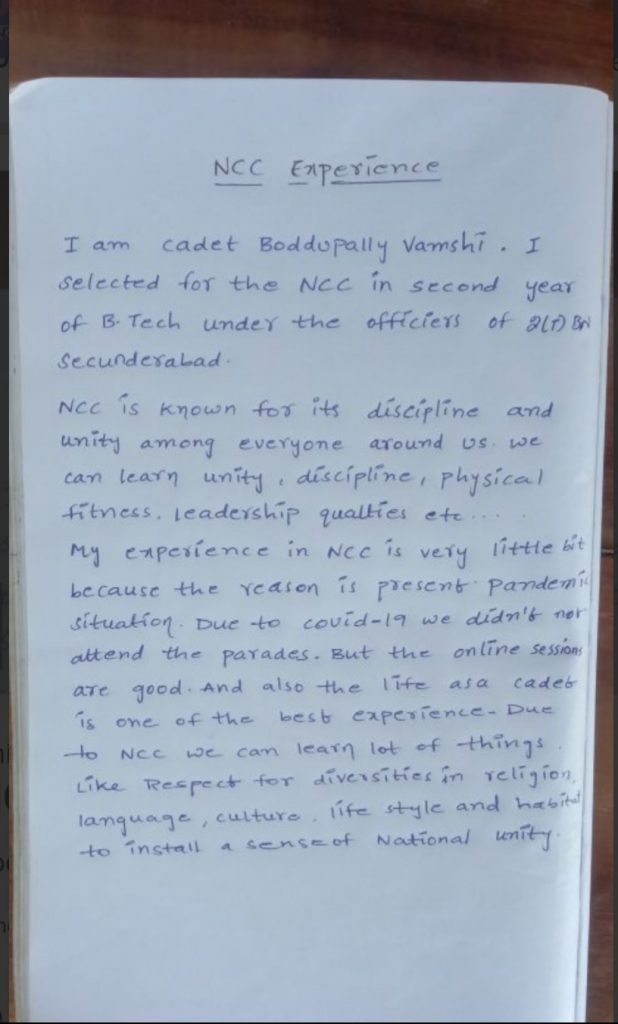 NCC Experience
I am cadet Boddupally Vamshi. I
selected for the NCC in second year
of B.Tech under the officiers of 2(T) BN
Secunderabad.
NCC is known for its discipline and
unity among everyone around us. we
can learn unity, discipline, physical
fitness, leadership qualties etc.....
My experience in NCC is very little bit
because the reason is present pandemic
situation. Due to covid-19 we didn't not
attend the parades. But the online sessions
are good. And also the life as a cadet
is one of the best experience. Due
to NCC we can learn lot of things.
Like Respect for diversities in religion,
language, culture, life style and habitat
to install a sense of National unity.